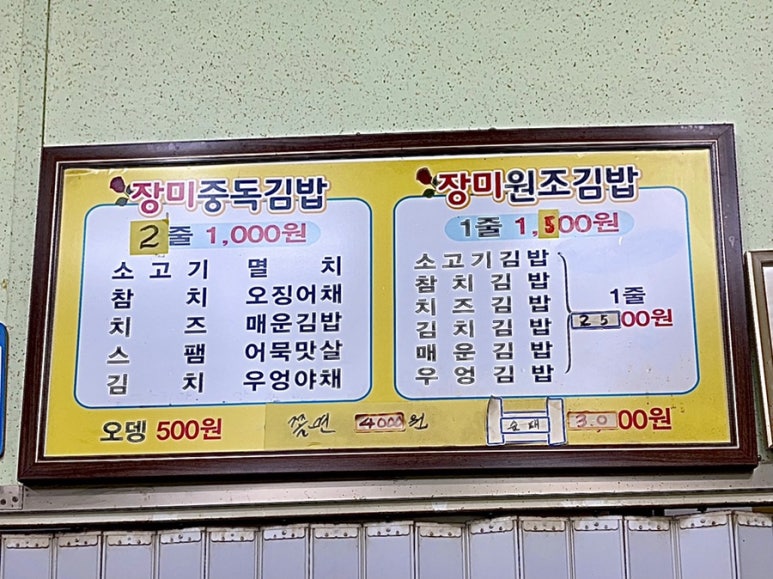 장미중독김밥
2줄 1,000원
소고기 멸치
참치 오징어채
치즈 매운김밥
스팸 어묵맛살
김치 우엉야채
오뎅 500원
장미원조김밥
1줄 1,500원
소고기김밥
참치김밥
치즈김밥
김치김밥
매운김밥
우엉김밥
1줄
2500원
쫄면 4000원
순대 3.000원